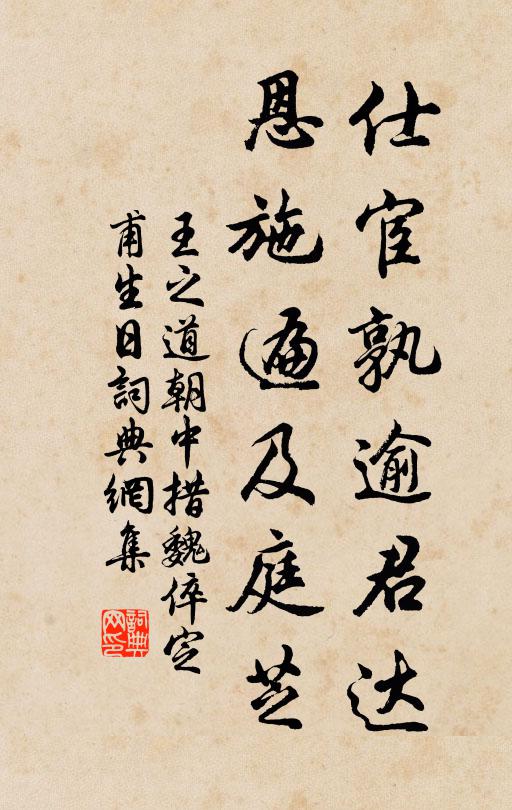 仕宦孰逾君达
恩施遍及庭芝
王之道朝中措魏倅定
甫生日詞典網集
詞典
网印